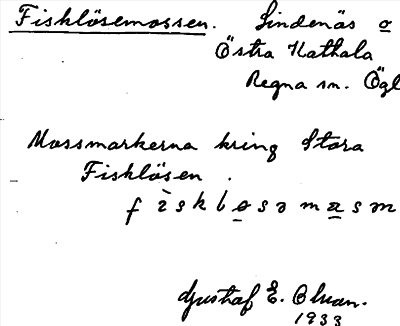 Fisklösemossen. Lindenäs o
Östra Kathala
Regna sn. Ögl
Mossmarkerna kring Stora
Fisklösen.
Gustaf E.
1933